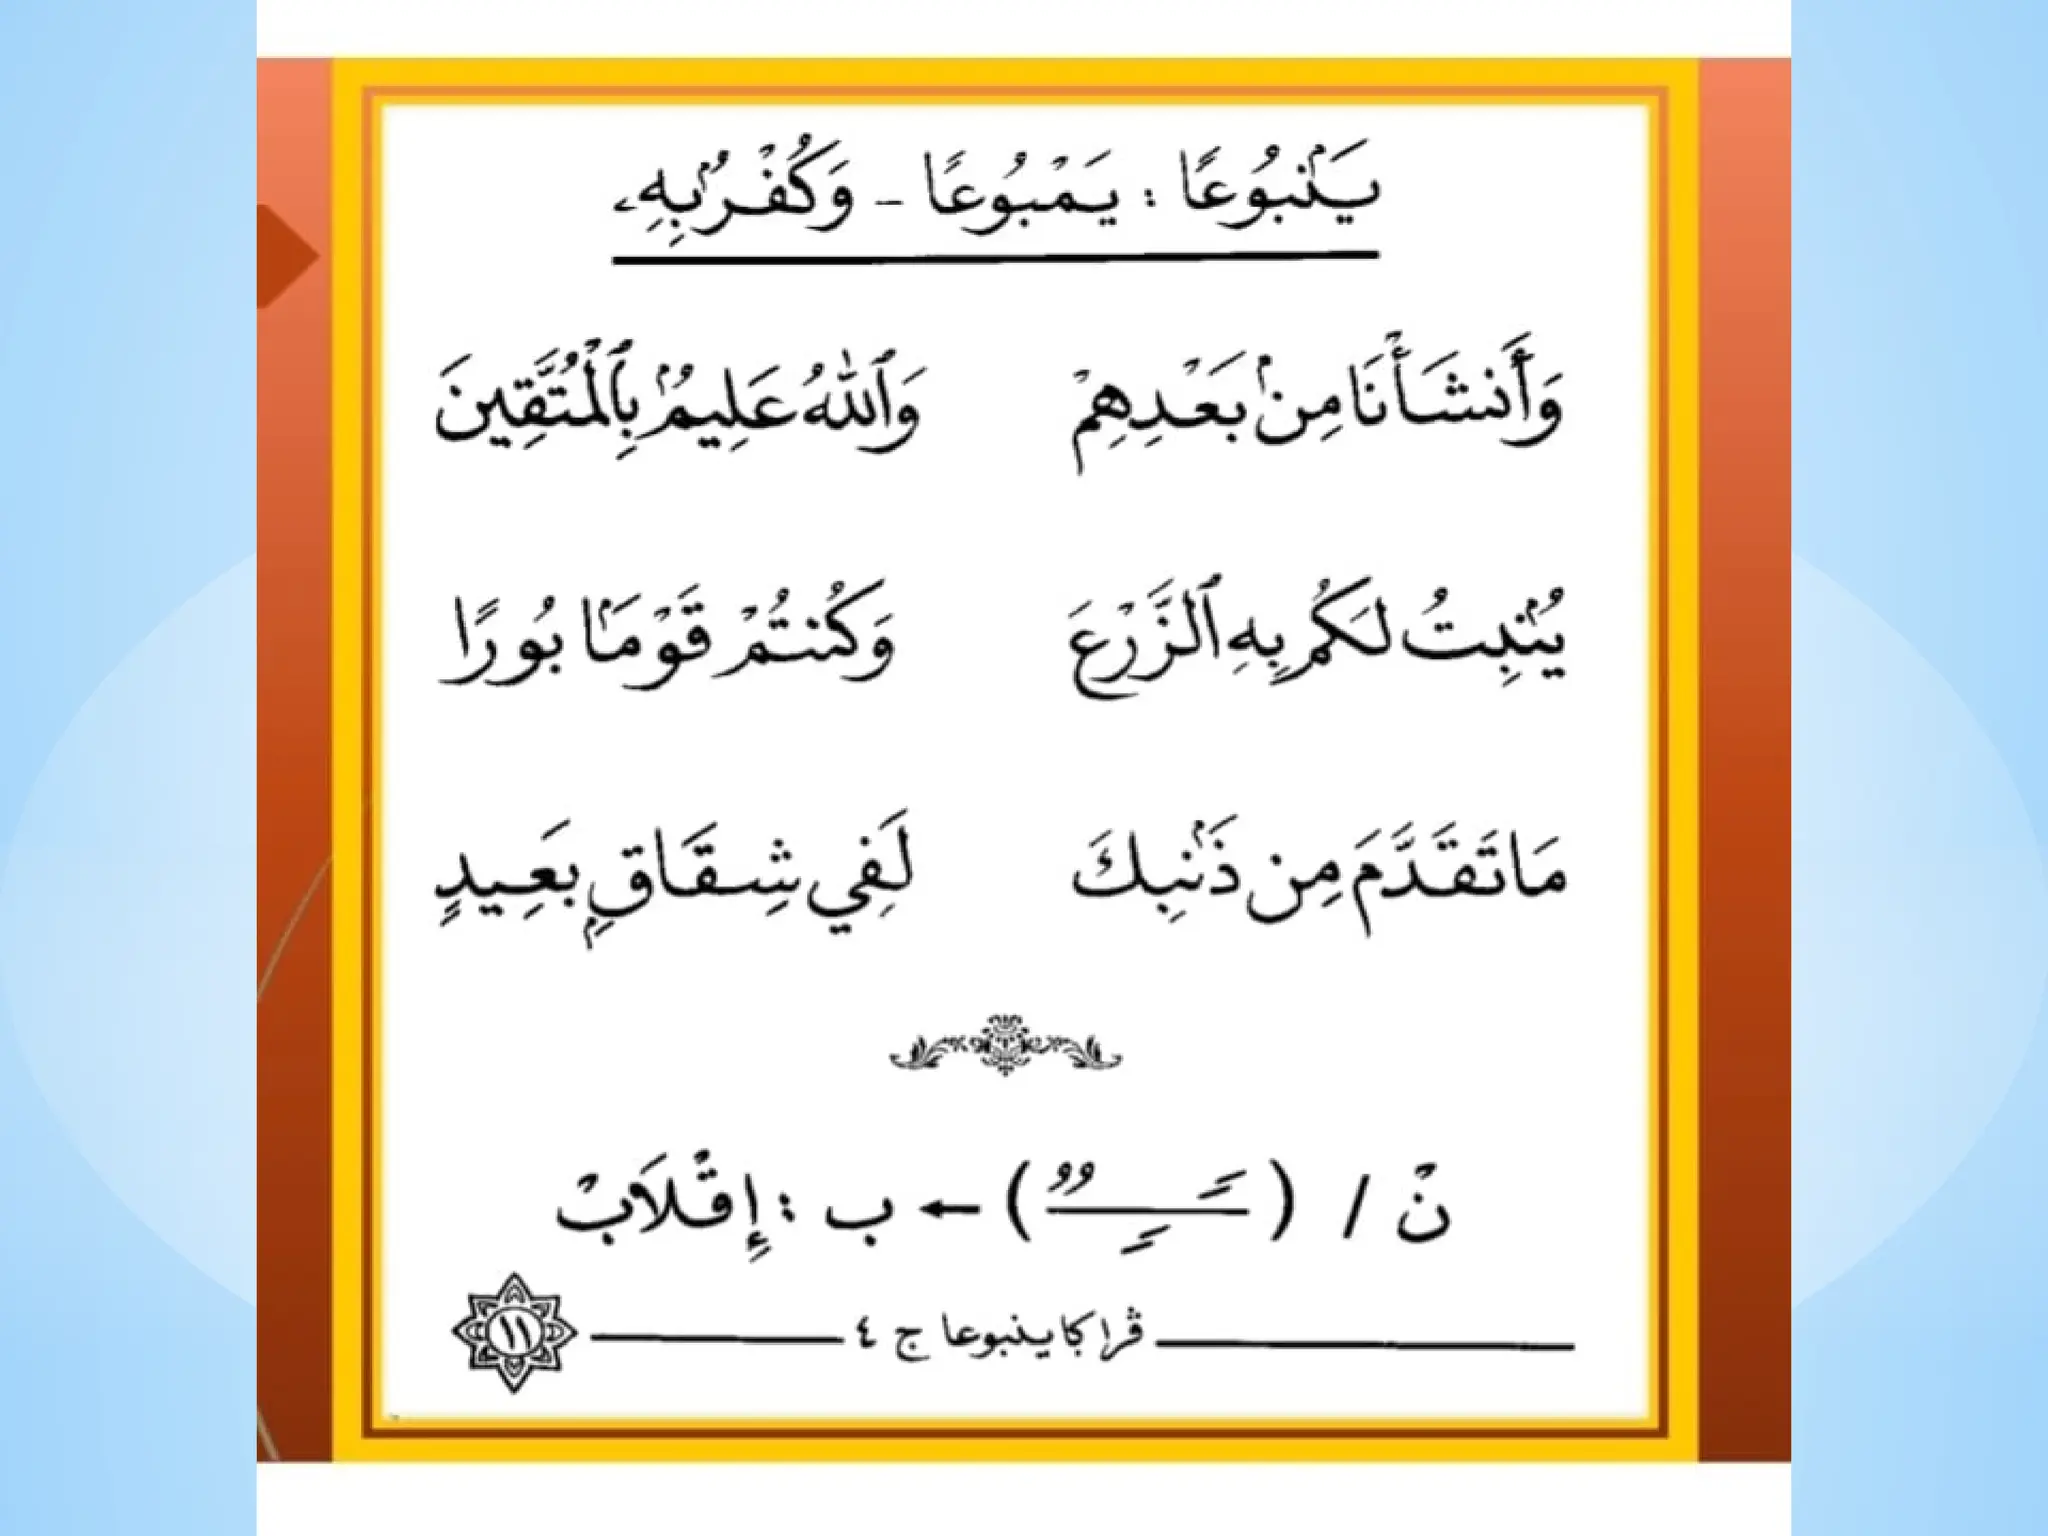 يَنۢبُوعًا : يَمْبُوعًا - وَكُفْرٌۢ بِهِۦ
وَأَنشَأْنَا مِنۢ بَعْدِهِمْ     وَٱللهُ عَلِيمٌۢ بِٱلْمُتَّقِينَ
يُنۢبِتُ لَكُم بِهِ ٱلزَّرْعَ     وَكُنتُمْ قَوْمَۢا بُورًا
مَا تَقَدَّمَ مِن ذَنۢبِكَ     لَفِي شِقَاقٍۭ بَعِيدٍ
نْ / ( ـًـٍـٌ ) ← ب : إِقْلَابْ
ڤراكا ينبوعا ج ٤
١١